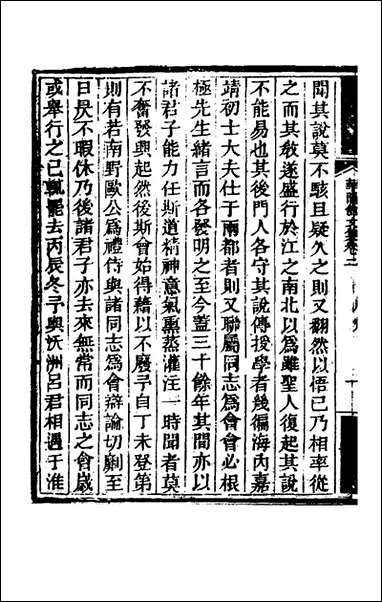 聞其說莫不駭且疑久之則又翻然以悟已乃相率從
之而其教遂盛行於江之南北以爲雖聖人復起其說
不能易也其後門人各守其說傳授學者幾徧海內嘉
靖初士大夫仕于兩都者則又聯屬同志爲會會必根
極先生緒言而各發明之至今蓋三十餘年其間亦以
諸君子能力任斯道精神意氣熏蒸灌注一時聞者莫
不奮發興起然後斯會始得藉以不廢予自丁未登第
則有若南野歐公爲禮侍與諸同志爲會辯論切劘至
日昃不暇休乃後諸君子亦去來無常而同志之會歲
或舉行之已輒罷去丙辰冬予與沃洲呂君相遇于淮